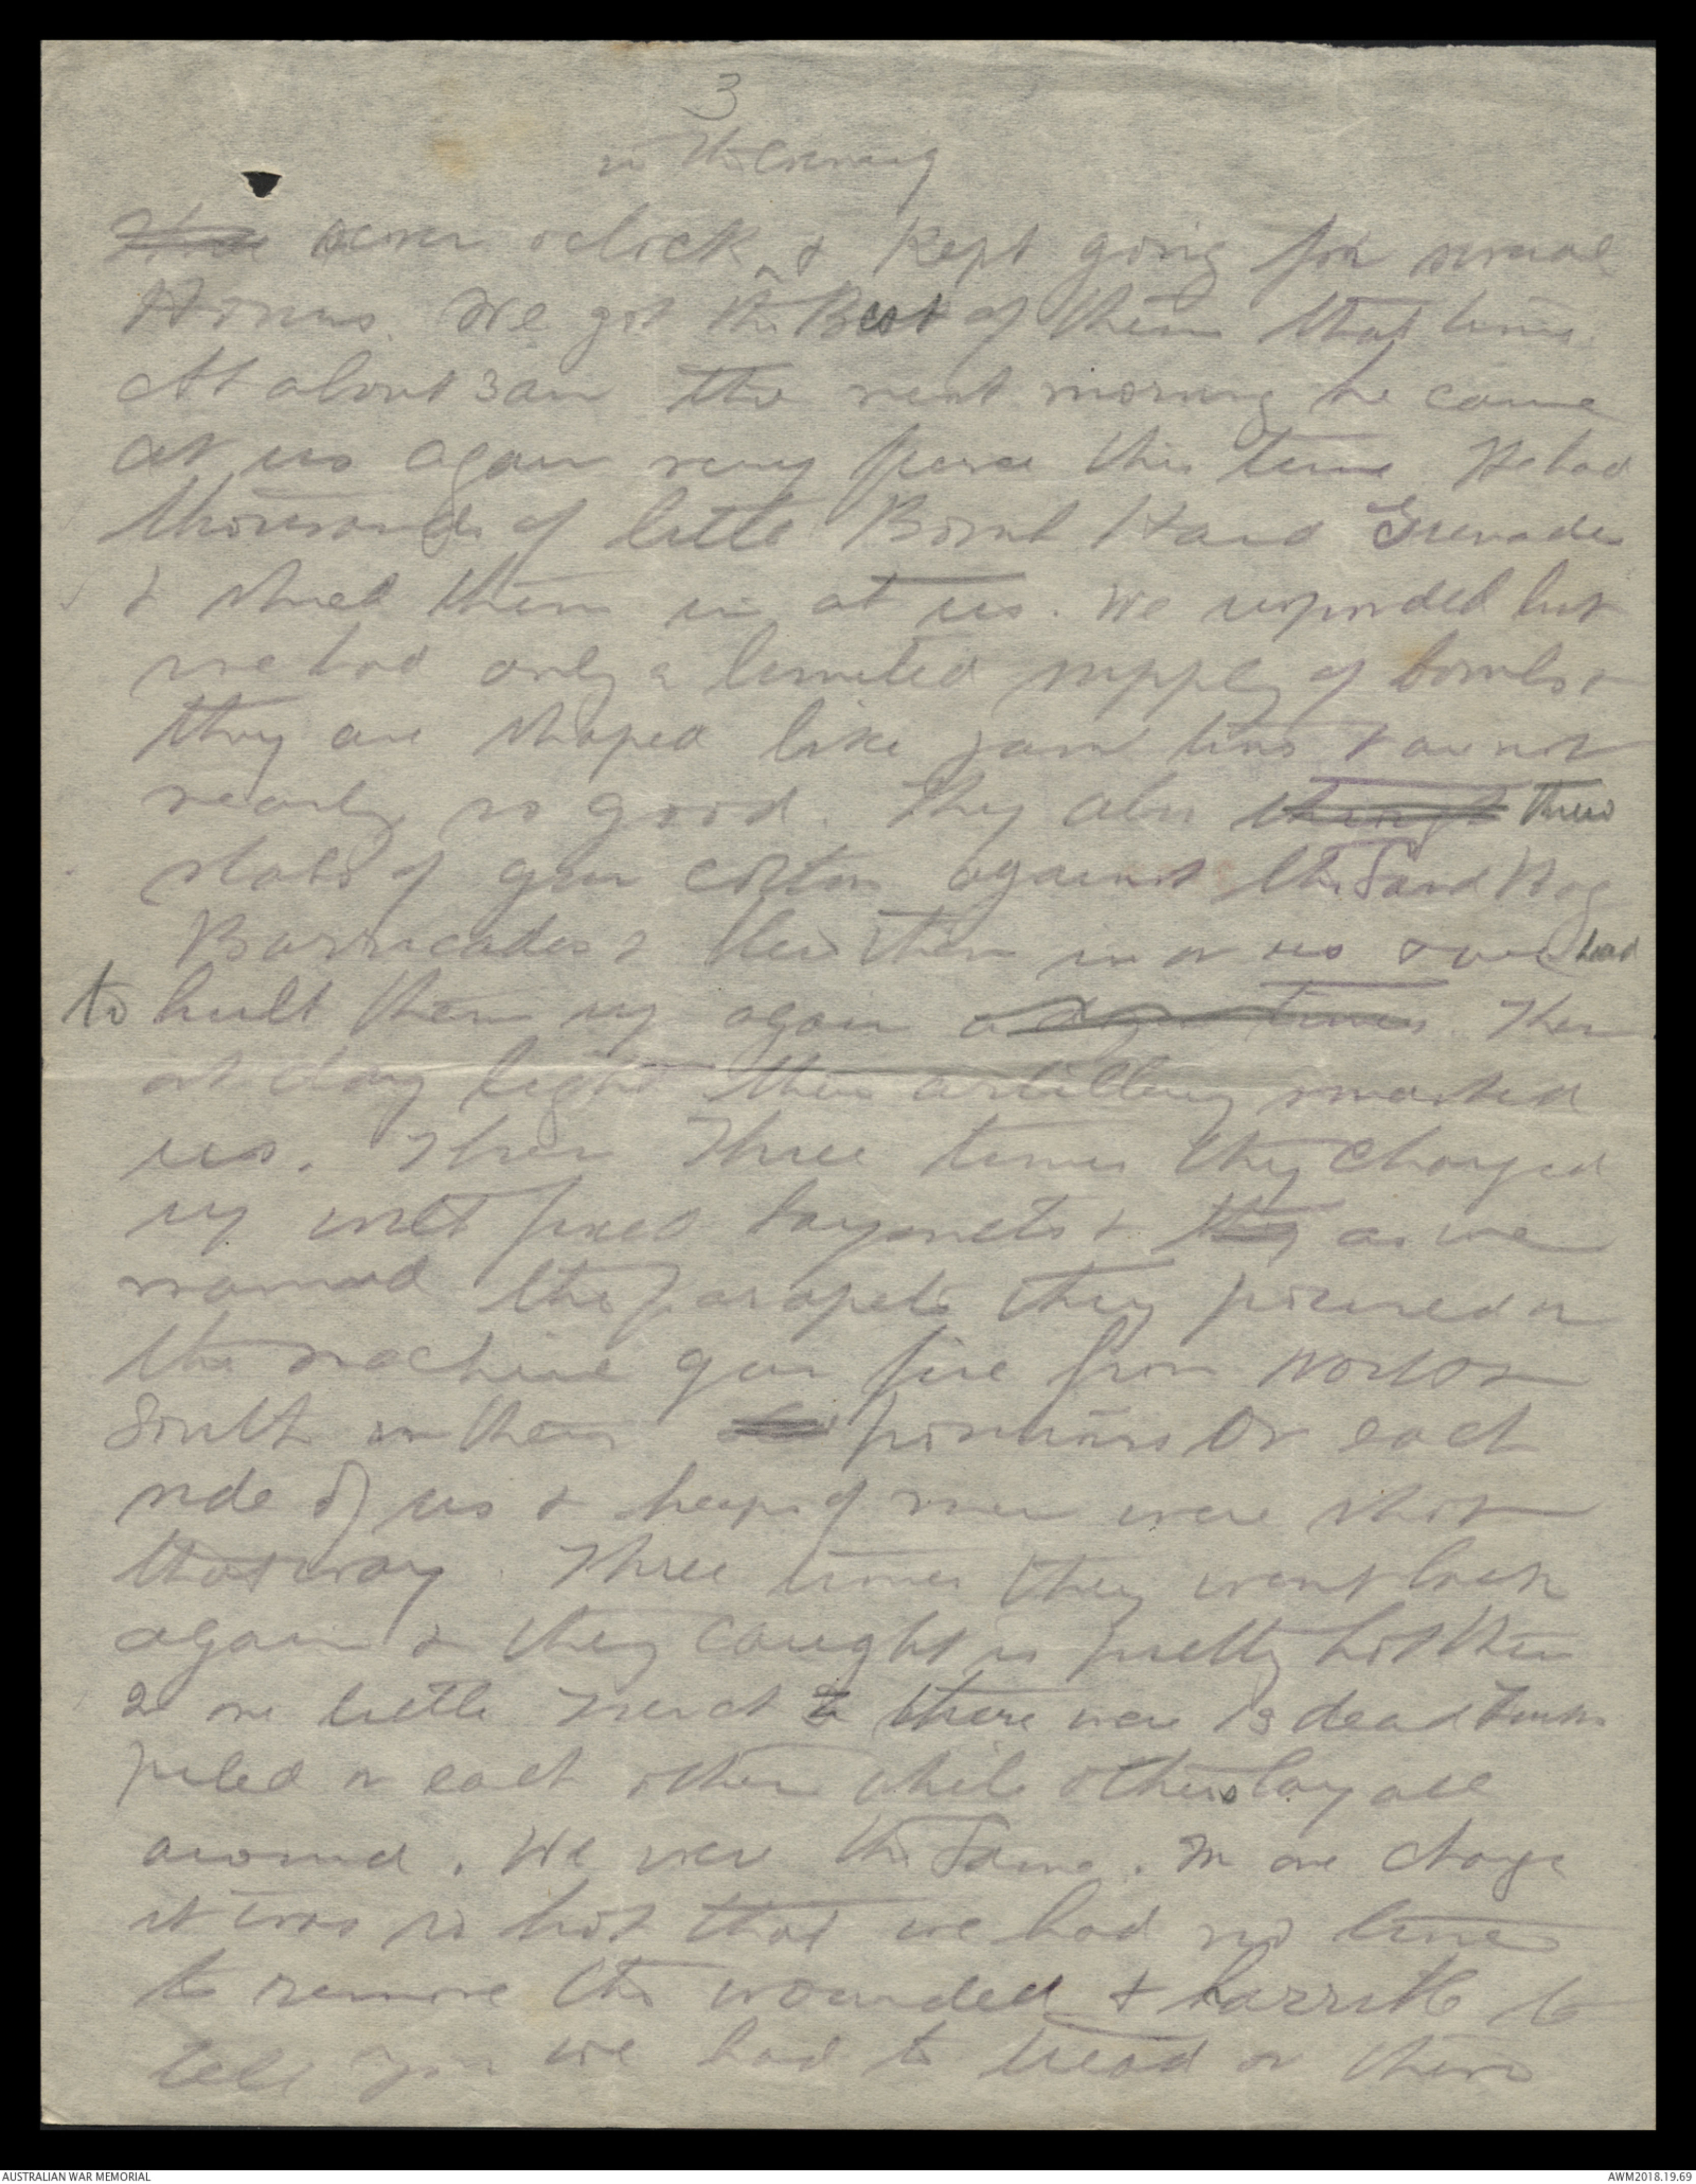 3
in the evening
seven oclock & kept going for several
Hours. We got the Best of them that time.
At about 3am the next morning he came
at us again very fierce this time He had
thousands of little Bomb Hand Grenades
& shied them in at us. We responded but
we had only a limited supply of bombs &
they are shaped like jam tins & are not
nearly so good. They also threw
slabs of gun cotton against the Sand Bag
Barricades & blew them in on us & we had
to built them up again. Then
at day light their artillery smashed
us. Then Three times they charged
up with fixed bayonets & they as we
manned the parapets they poured in
the machine gun fire from North &
South in their positions on each
side of us & heaps of men were shot
that way. Three times they went back
again & they caught it pretty hot then
In one little Trench there were 13 dead Turks
piled on each other while others lay all
around. We were the Same. In one charge
it was so hot that we had no time
to remove the wounded & horrible to
tell you we had to tread on them
AUSTRALIAN WAR MEMORIAL
AWM2018.19.69